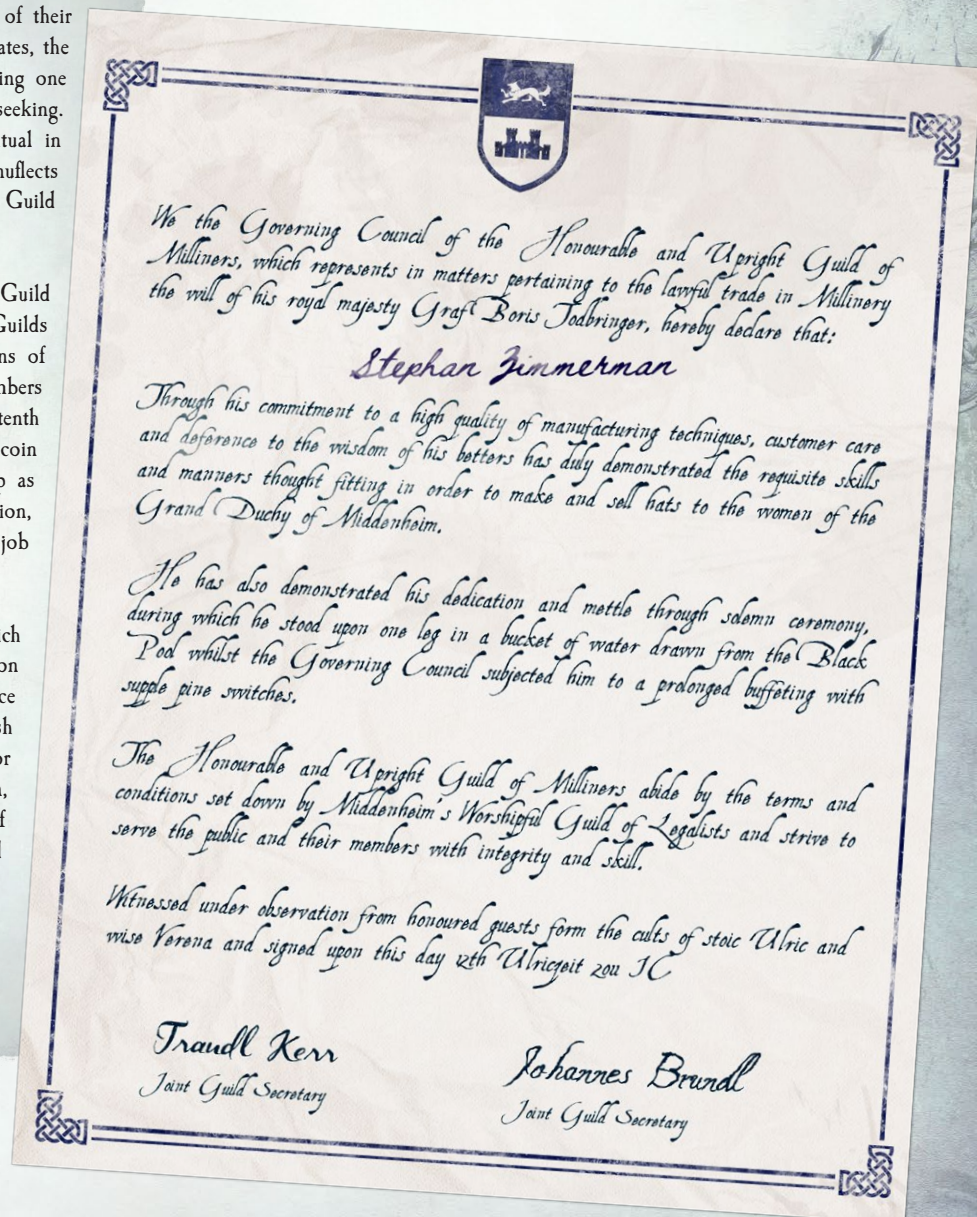 of their
ates, the
ing one
seeking.
tual in
nuflects
Guild
Guild
Guilds
ns of
nbers
tenth
coin
p as
ion,
job
ich
on
ce
sh
or
,
f
We the Governing Council of the Honourable and Upright Guild of
Milliners, which represents in matters pertaining to the lawful trade in Millinery
the will of his royal majesty Graf Boris Todbringer, hereby declare that:
Stephan Zimmerman
Through his commitment to a high quality of manufacturing techniques, customer care
and deference to the wisdom of his betters has duly demonstrated the requisite skills
and manners thought fitting in order to make and sell hats to the women of the
Grand Duchy of Middenheim.
He has also demonstrated his dedication and mettle through solemn ceremony,
during which he stood upon one leg in a bucket of water drawn from the Black
Pool whilst the Governing Council subjected him to a prolonged buffeting with
supple pine switches.
The Honourable and Upright Guild of Milliners abide by the terms and
conditions set down by Middenheim's Worshipful Guild of Legalists and strive to
serve the public and their members with integrity and skill.
Witnessed under observation from honoured guests form the cults of stoic Ulric and
wise Verena and signed upon this day 12th Ulriczeit 2011 IC
Traudl Kerr
Joint Guild Secretary
Johannes Brundl
Joint Guild Secretary